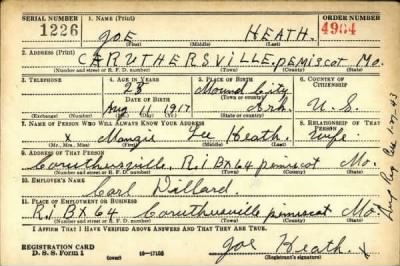 SERIAL NUMBER 1. NAME (Print) ORDER NUMBER
1226 JOE HEATH. 4984
(First) (Middle) (Last)
2. ADDRESS (Print)
CARUTHERSVILLE, pemiscot Mo.
(Number and street or R. F. D. number) (Town) (County) (State)
3. TELEPHONE 4. AGE IN YEARS 5. PLACE OF BIRTH 6. COUNTRY OF CITIZENSHIP
23 Mound City
DATE OF BIRTH (Town or county)
Aug 11 1917 Ark. U. S.
(Exchange) (Number) (Mo.) (Day) (Yr.) (State or country)
7. NAME OF PERSON WHO WILL ALWAYS KNOW YOUR ADDRESS 8. RELATIONSHIP OF THAT PERSON
x Mangie Lee Heath. Wife
(Mr., Mrs., Miss) (First) (Middle) (Last)
9. ADDRESS OF THAT PERSON
Caruthersville, R.1 BX 64 pemiscot Mo.
(Number and street or R. F. D. number) (Town) (County) (State)
10. EMPLOYER'S NAME
Carl Dillard.
11. PLACE OF EMPLOYMENT OR BUSINESS
R.1 BX 64 Caruthersville pemiscot Mo.
(Number and street or R. F. D. number) (Town) (County) (State)
I AFFIRM THAT I HAVE VERIFIED ABOVE ANSWERS AND THAT THEY ARE TRUE.
REGISTRATION CARD
D. S. S. Form 1 (over) 16—17105 Joe Heath. x
(Registrant's signature)